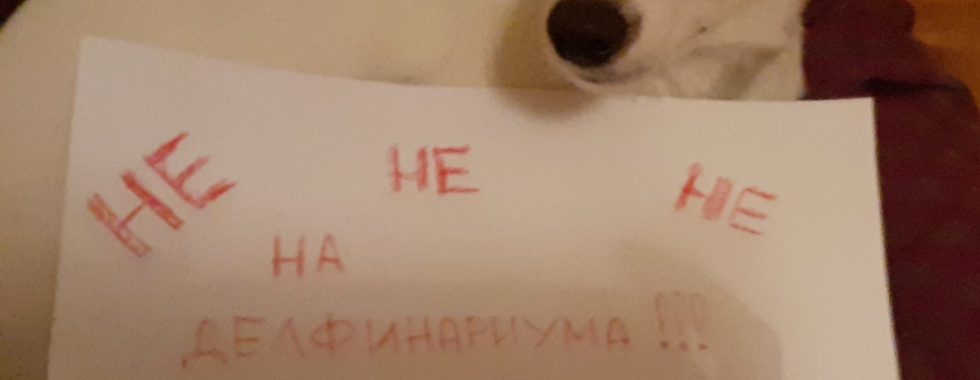 НЕ НЕ НЕ
НА
ДЕЛФИНАРИУМА!!!